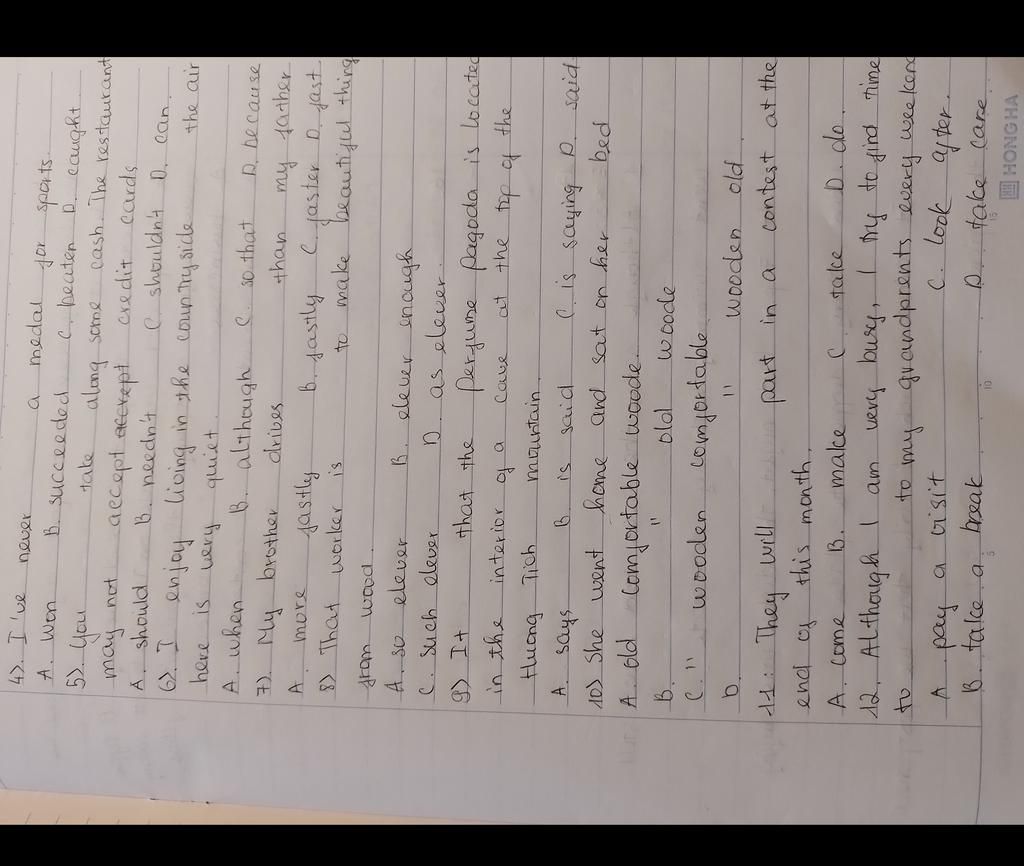 4) I've never a medal for sports
A. Won B. succeeded C. beaten D. caught
5) You take along some cash. The restaurant
may not accept credit cards
A. should B. needn't C. shouldn't D. can
6) I enjoy living in the countryside the air
here is very quiet.
A. when B. although C. so that D. because
7) My brother drives than my father
A. more fastly B. fastly C. faster D. fast
8) That worker is to make beautiful thing
from wood.
A. so clever B. clever enough
C. such clever D. as clever.
9) It that the perfume pagoda is located
in the interior of a cave at the top of the
Huong Tich mountain.
A. says B is said C. is saying D. said
10) She went home and sat on her bed
A. old comfortable woode.
B. " old woode
C. " wooden comfortable
D. " wooden old.
11: They will part in a contest at the
end of this month.
A. come B. make C take D. do.
12. Although I am very busy, I try to find time
to to my grandprents every weekend
A pay a visit C. look after.
B. take a break D. take care
HONG HA
5 10 15